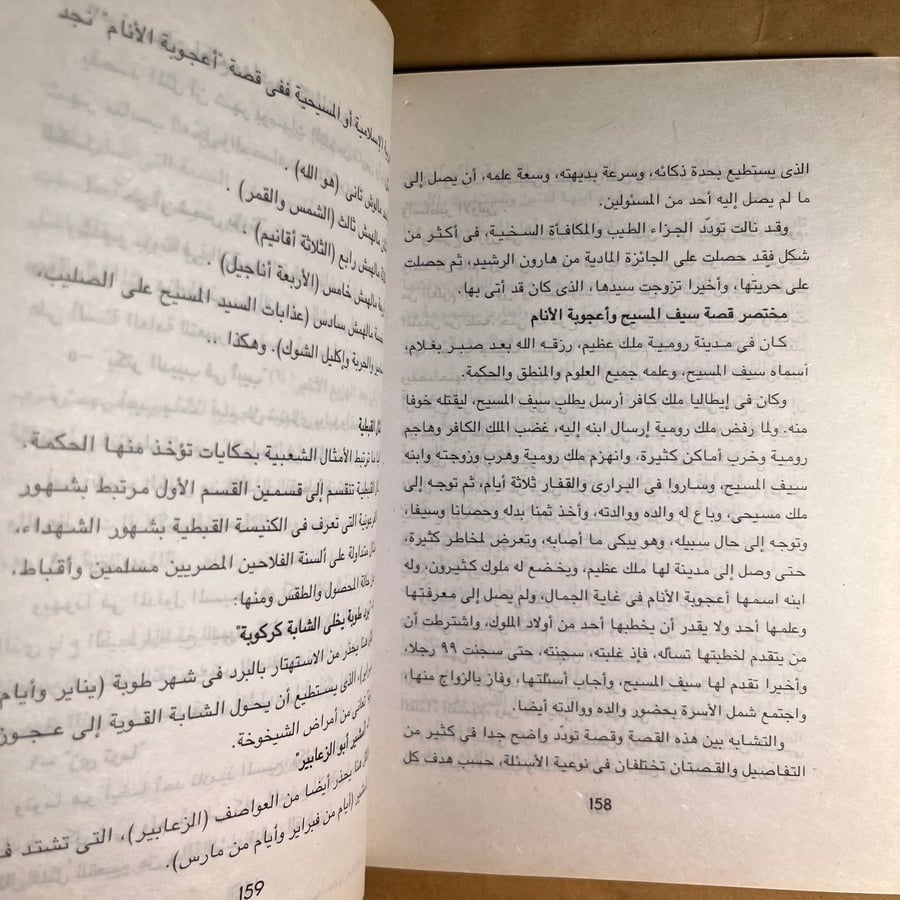 الذى يستطيع بحدة ذكائه، وسرعة بديهته، وسعة علمه، أن يصل إلى
ما لم يصل إليه أحد من المسئولين.
وقد نالت تودّد الجزاء الطيب والمكافأة السخية، فى أكثر من
شكل فقد حصلت على الجائزة المادية من هارون الرشيد، ثم حصلت
على حريتها، وأخيرا تزوجت سيدها، الذى كان قد أتى بها.
مختصر قصة سيف المسيح وأعجوبة الأنام
كان فى مدينة رومية ملك عظيم، رزقه الله بعد صبر بغلام،
أسماه سيف المسيح، وعلمه جميع العلوم والمنطق والحكمة.
وكان فى إيطاليا ملك كافر أرسل يطلب سيف المسيح، ليقتله خوفا
منه. ولما رفض ملك رومية إرسال ابنه إليه، غضب الملك الكافر وهاجم
رومية وخرب أماكن كثيرة، وانهزم ملك رومية وهرب وزوجته وابنه
سيف المسيح، وساروا فى البرارى والقفار ثلاثة أيام، ثم توجه إلى
ملك مسيحى، وباع له والده ووالدته، وأخذ ثمنا بدله وحصانا وسيفا،
وتوجه إلى حال سبيله، وهو يبكى ما أصابه، وتعرض لمخاطر كثيرة،
حتى وصل إلى مدينة لها ملك عظيم، ويخضع له ملوك كثيرون، وله
ابنه اسمها أعجوبة الأنام فى غاية الجمال، ولم يصل إلى معرفتها
وعلمها أحد ولا يقدر أن يخطبها أحد من أولاد الملوك، واشترطت أن
من يتقدم لخطبتها تسأله، فإذ غلبته، سجنته، حتى سجنت ٩٩ رجلا،
وأخيرا تقدم لها سيف المسيح، وأجاب أسئلتها، وفاز بالزواج منها،
واجتمع شمل الأسرة بحضور والده ووالدته أيضا.
والتشابه بين هذه القصة وقصة تودّد واضح جدا فى كثير من
التفاصيل والقصتان تختلفان فى نوعية الأسئلة، حسب هدف كل
158
الإسلامية أو المسيحية ففى قصة "أعجوبة الأنام" نجد
مالوش ثانى (هو الله).
مالهمش ثالث (الشمس والقمر).
مالهمش رابع (الثلاثة أقانيم).
مالهمش خامس (الأربعة أناجيل).
مالهمش سادس (عذابات السيد المسيح على الصليب،
والحربة وإكليل الشوك). وهكذا ..
القبطية
ترتبط الأمثال الشعبية بحكايات تؤخذ منها الحكمة.
القبطية تنقسم إلى قسمين القسم الأول مرتبط بشهور
التى تعرف فى الكنيسة القبطية بشهور الشهداء،
على ألسنة الفلاحين المصريين مسلمين وأقباط،
حالة الحصول والطقس ومنها:
طوبة يخلى الشابة كركوبة"
يحذر من الاستهتار بالبرد فى شهر طوبة (يناير وأيام
الذى يستطيع أن يحول الشابة القوية إلى عجوز
تعانى من أمراض الشيخوخة.
أبو الزعابير"
يحذر أيضا من العواصف (الزعابير)، التى تشتد فى
(أيام من فبراير وأيام من مارس).
159